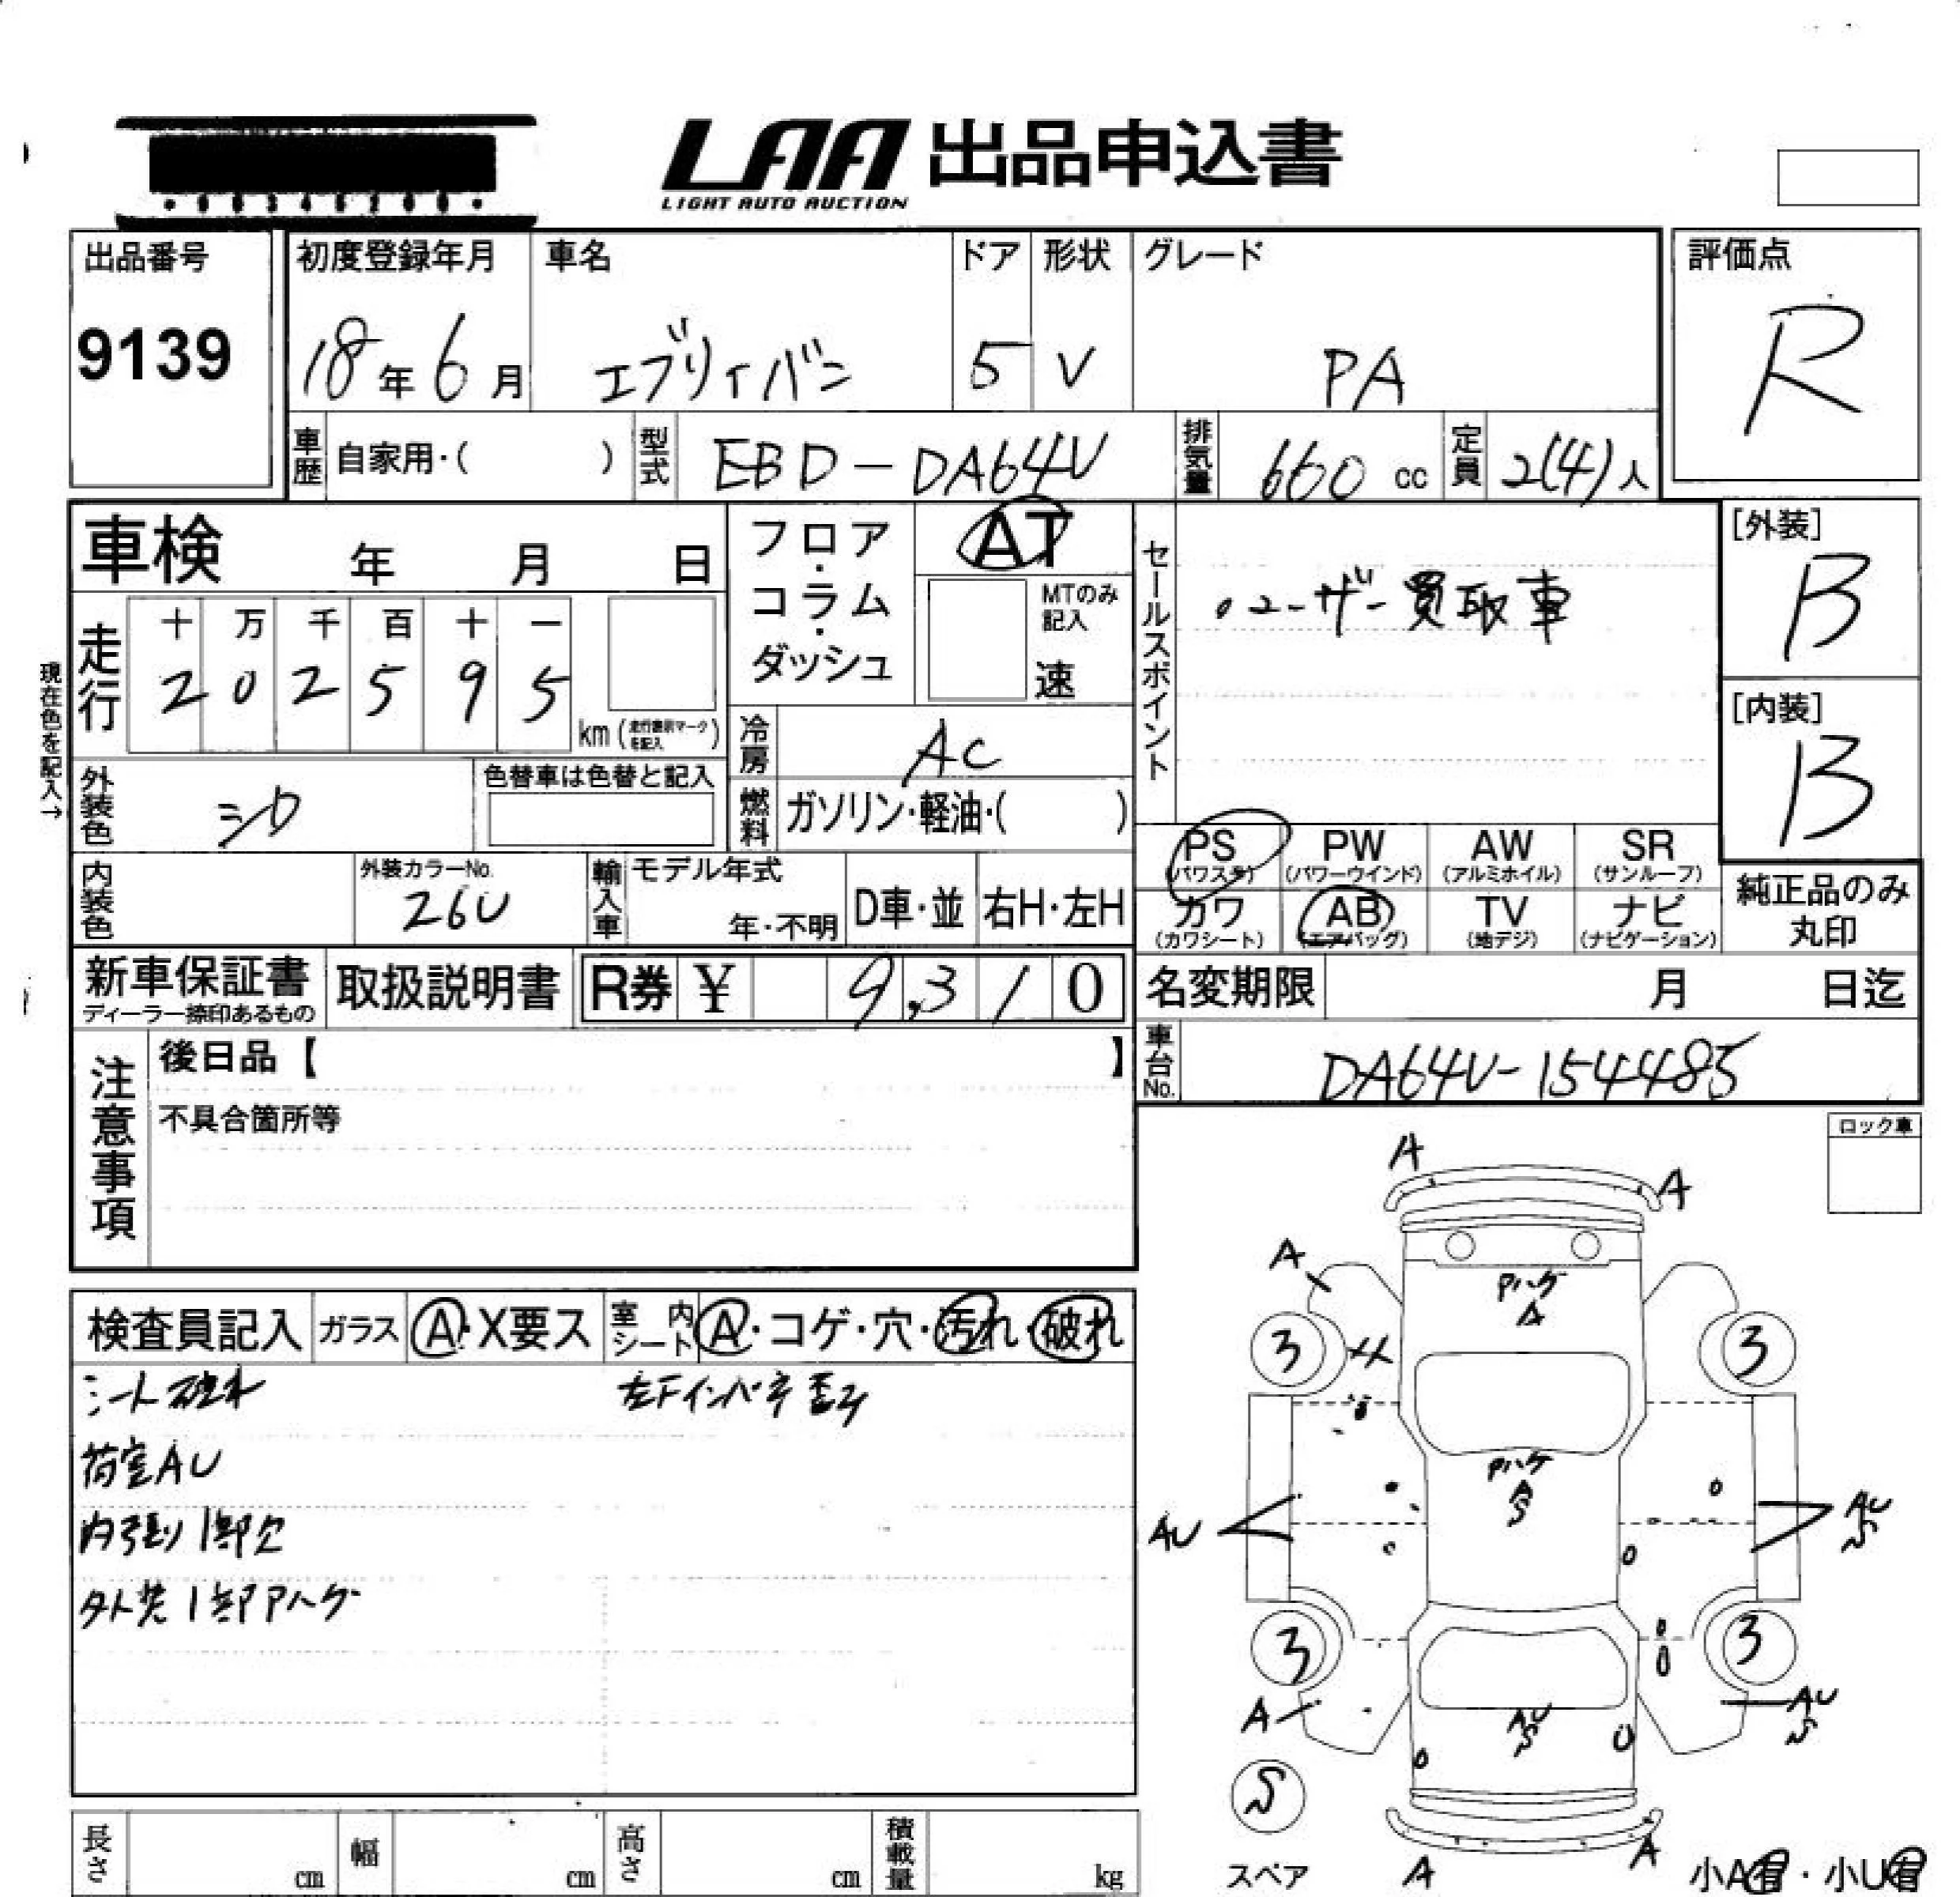 LAA 出品申込書
LIGHT AUTO AUCTION
出品番号
9139
初度登録年月
18年6月
車名
エブリイバン
ドア
5
形状
V
グレード
PA
評価点
R
車歴 自家用・( )
型式 EBD-DA64V
排気量 660 cc
定員 2(4)人
車検 年 月 日
フロア・コラム・ダッシュ
AT
MTのみ記入
速
セールスポイント
・ユーザー買取車
[外装]
B
[内装]
B
現在色を記入→
走行
十 万 千 百 十 一
2 0 2 5 9 5
km (走行距離マークを記入)
冷房 AC
外装色 シロ
色替車は色替と記入
燃料 ガソリン・軽油・( )
PS PW AW SR
(パワステ) (パワーウインド) (アルミホイル) (サンルーフ)
カワ AB TV ナビ
(カワシート) (エアバッグ) (地デジ) (ナビゲーション)
純正品のみ丸印
内装色
外装カラーNo.
26U
輸入車 モデル年式
年・不明
D車・並 右H・左H
新車保証書
ディーラー捺印あるもの
取扱説明書
R券 ¥ 9,310
名変期限 月 日迄
車台No. DA64V-154485
注意事項
後日品【 】
不具合箇所等
ロック車
検査員記入 ガラス A・X要ス 室内シート A・コゲ・穴・汚れ・破れ
シート破れ 左Fインパネ歪み
荷室AU
内張り1部欠
外装1部Pハゲ
A
A
A
Pハゲ
A
3
3
Pハゲ
A
S
AU
AU
S
3
3
A
AU
S
AU
S
S
スペア
A
A
小A有・小U有
長さ cm 幅 cm 高さ cm 積載量 kg